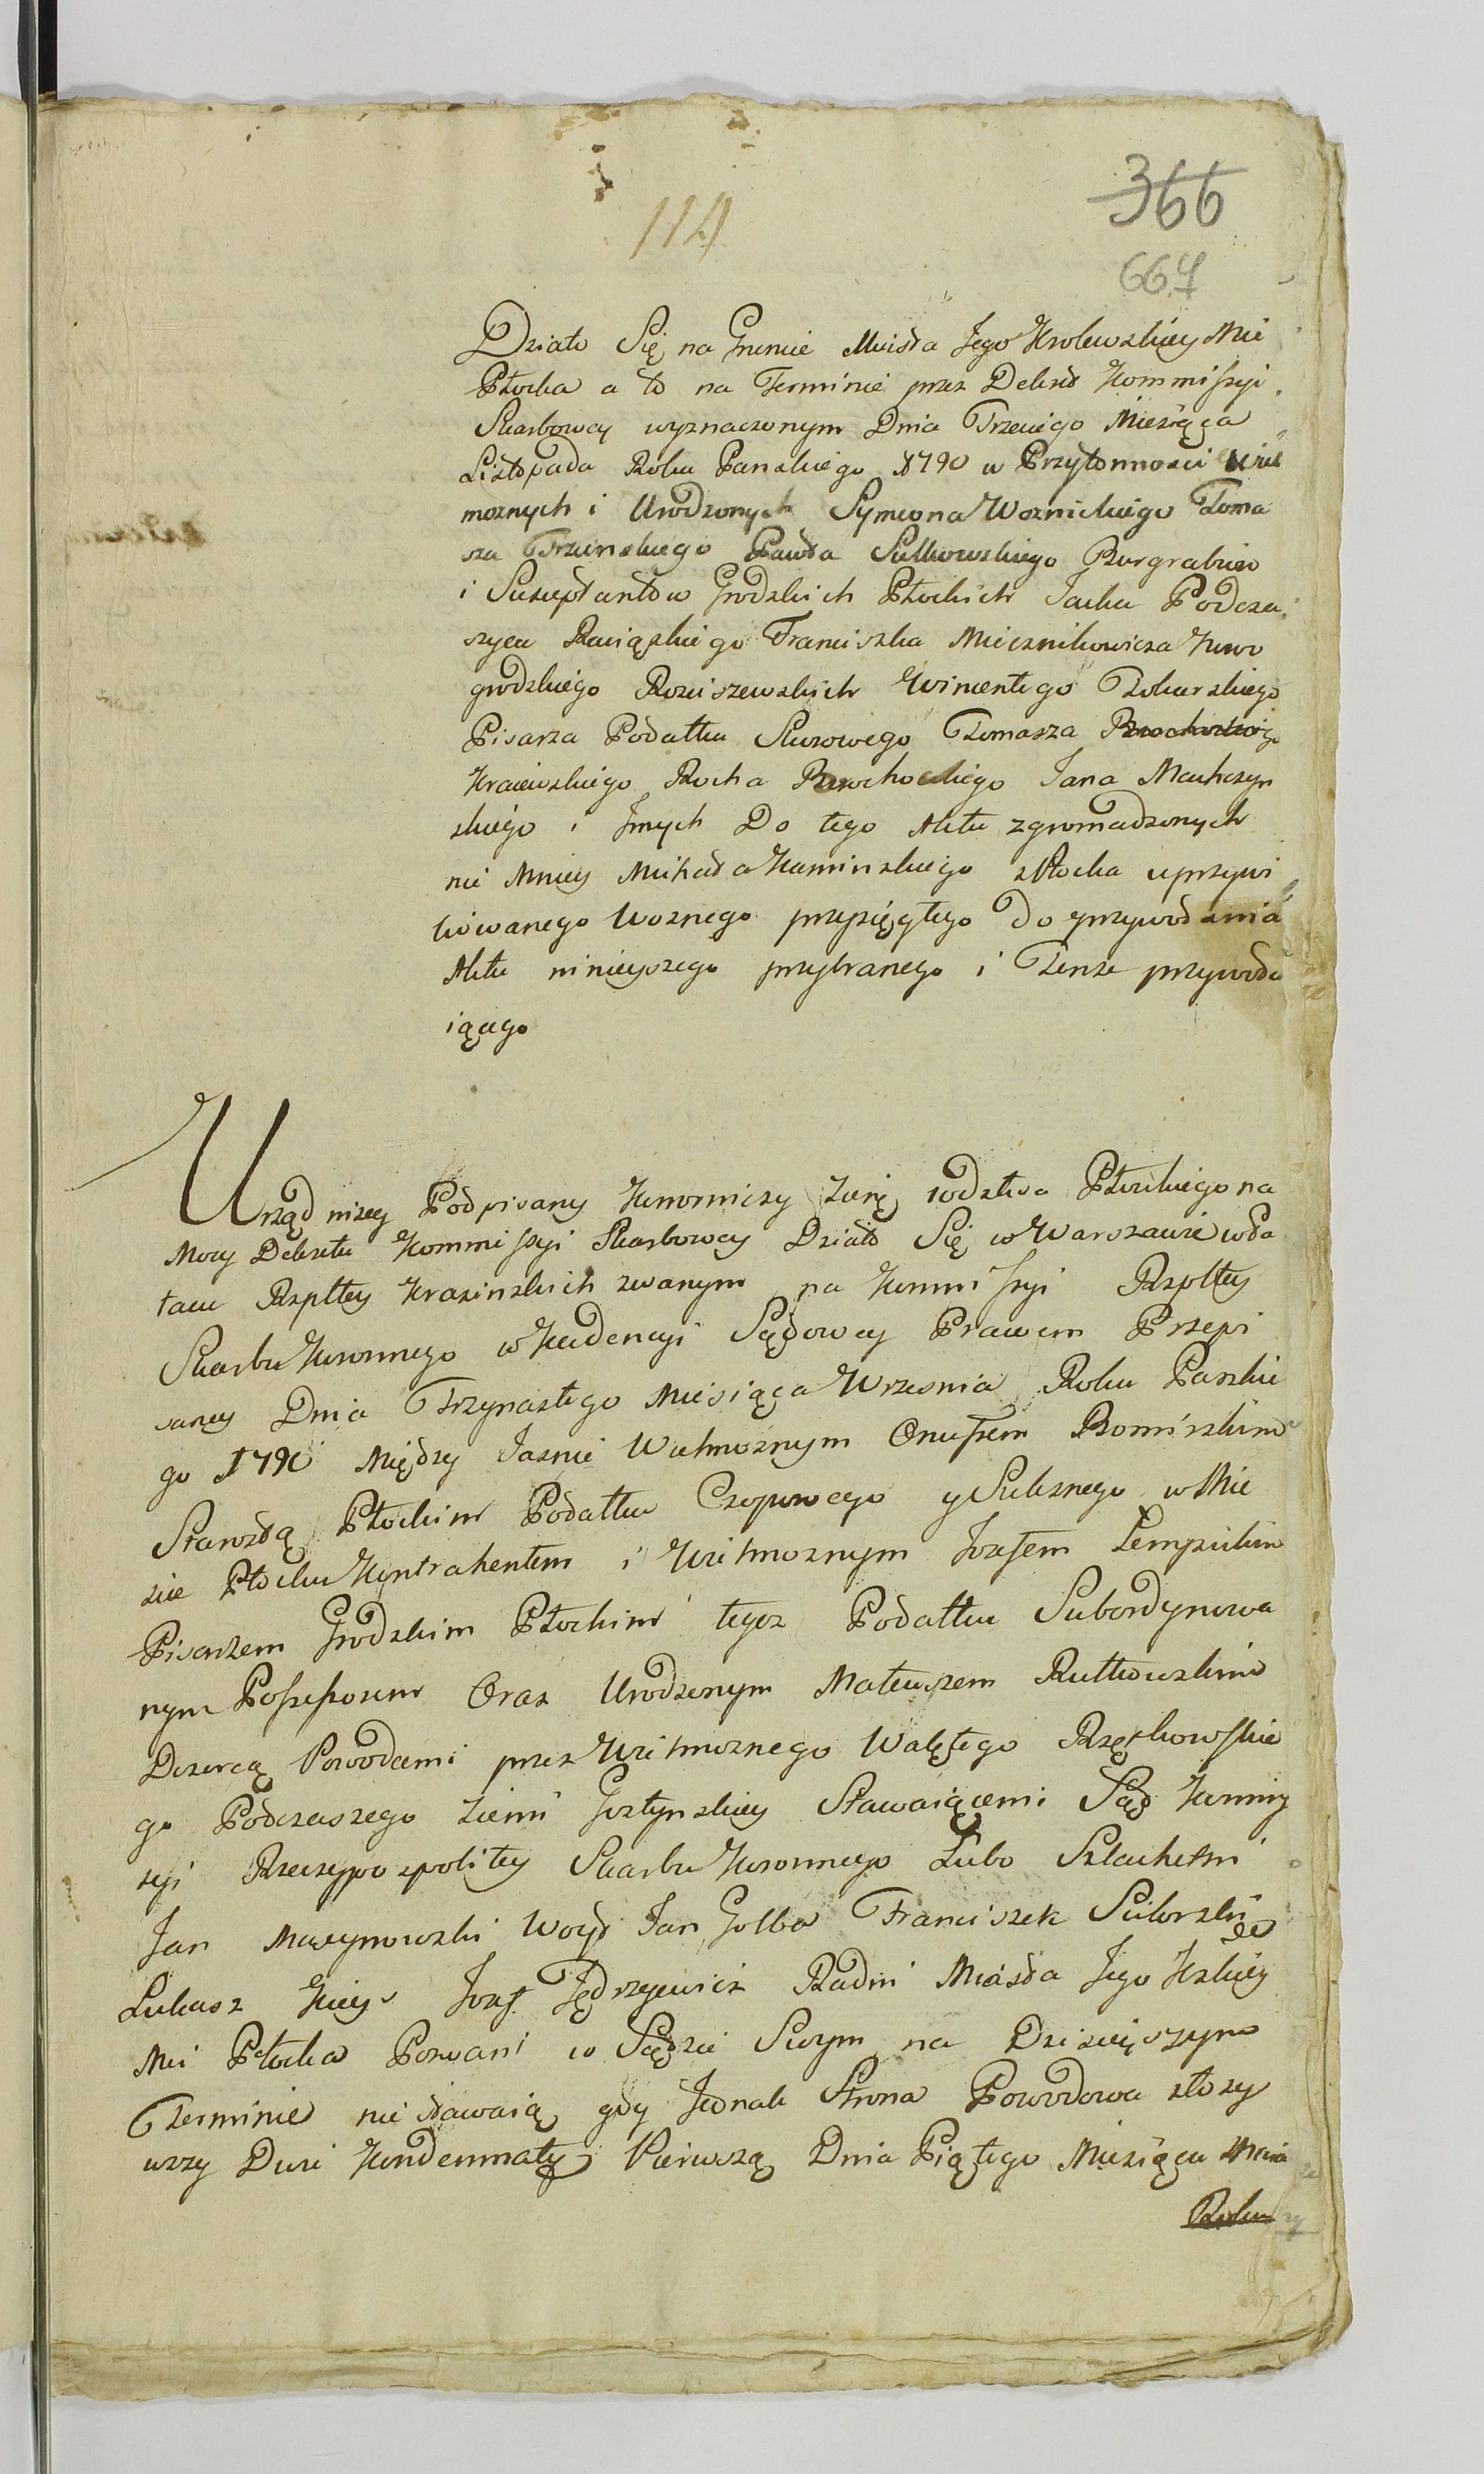 366
114
667
Działo Się na Gruncie Miasta Jego Krolewskiey Mci
Płocka a to na Terminie przez Dekret Kommissyi
Skarbowey wyznaczonym Dnia Trzeciego Miesiąca
Listopada Roku Panskiego 1790 w Przytomnosci Wiel
moznych i Urodzonych Symeona Woznickiego Toma
sza Trzcinskiego Pawła Sulkowskiego Burgrabiow
i Susceptantow Grodzkich Płockich Jacka Podcza
szyca Raciąskiego Franciszka Miecznikowicza Nowo
grodzkiego Rosciszewskich Wincentego Tokarskiego
Pisarza Podatku Skurowego Tomasza Brochockiego
Kraiewskiego Rocha Brochockiego Jana Machczyn
skiego i Jnnych Do tego Aktu zgromadzonych
nie Mniey Michała Kaminskiego z Płocka uprzywi
liowanego Woznego przysięgłego Do przywodzenia
Aktu ninieyszego przybranego i Tenze przywodz
iącego
Urząd nizey Podpisany Komorniczy Ziemi wodztwa Płockiego na
Mocy Dekretu Kommissyi Skarbowey Działo Się w Warszawie w Pa
łacu Rzpltey Krasinskich zwanym na Kommissyi Rzpltey
Skarbu Koronnego w Kadencyi Sądowey Prawem Przepi
saney Dnia Trzynastego Miesiąca Wrzesnia Roku Panskie
go 1790 Między Jasnie Wielmoznym Onufrem Bromirskim
Starostą Płockim Podatku Czopowego y Szelęznego w Mie
scie Płocku Kontrahentem i Wielmoznym Jozefem Lempickim
Pisarzem Grodzkim Płockim tegoz Podatku Subordynowa
nym Possessorem Oraz Urodzonym Mateuszem Rutkowskim
Dozorcą Powodami przez Wielmoznego Walętego Rzętkowskie
go Podczaszego Ziemi Gostynskiey Stawaiącemi Sąd Kommis
syi Rzeczypospolitey Skarbu Koronnego Lubo Szlachetni
Jan Woyt Jan Golba Franciszek Sciborski
Łukasz Jozef Jędrzejewicz Radni Miasta Jego Krlskiey
Mci Płocka Pozwani w Sądzie Swym na Dzisieyszym
Terminie nie stawaią gdy Jednak Strona Powodowa złozy
wszy Dwie Kondemnaty Pierwszą Dnia Piątego Miesiąca Maia
Roku